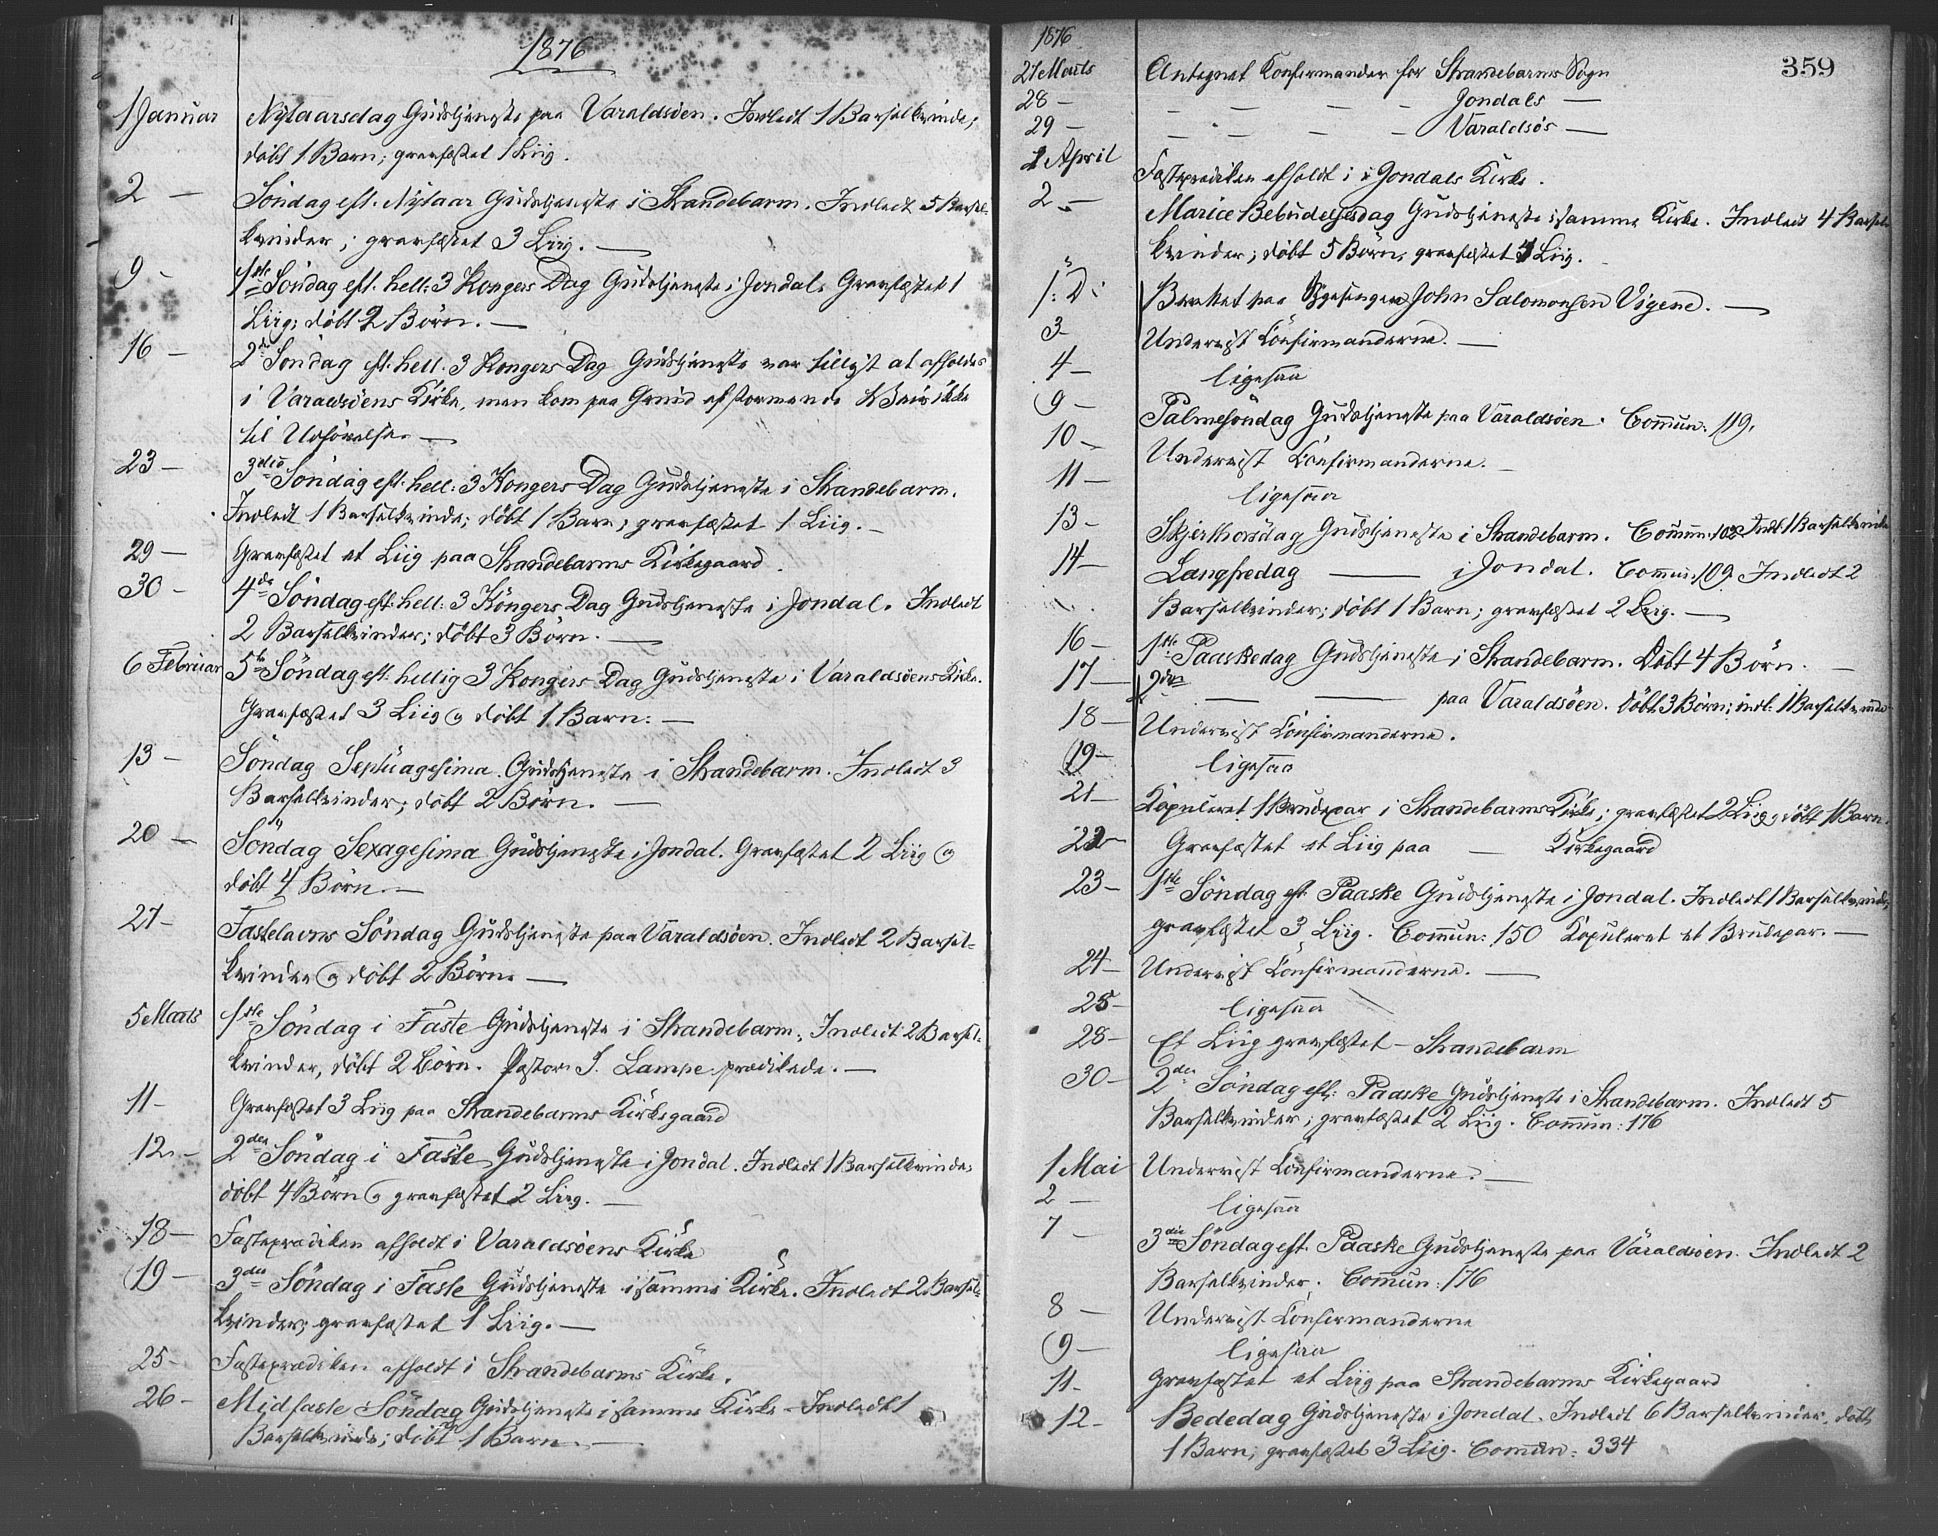 1876
1 Januar Nÿtaarsdag Gudstjeneste paa Varaldsöen. Indledt 1 Barselkvinde;
döbt 1 Barn; gravfæstet 1 Liig.
2 — Söndag eft. Nÿtaar Gudstjeneste i Strandebarm. Indledt 5 Barsel-
kvinder; gravfæstet 3 Liig. —
9 - 1ste Söndag eft. hell: 3 Kongers Dag Gudstjeneste i Jondal. Gravfæstet 1
Liig; döbt 2 Börn. —
16 — 2den Söndag eft. hell. 3 Kongers Dag Gudstjeneste var tillyst at afholdes
i Varaldsöens Kirke, men kom paa Grund af stormende Veir ikke
til Udförelse. —
23 — 3die Söndag eft. hell: 3 Kongers Dag Gudstjeneste i Strandebarm.
Indledt 1 Barselkvinde; döbt 1 Barn; gravfæstet 1 Liig. —
29 — Gravfæstet et Liig paa Strandebarms Kirkegaard.
30 - 4de Söndag eft. hell: 3 Kongers Dag Gudstjeneste i Jondal. Indledt
2 Barselkvinder; döbt 3 Börn. —
6 Februar 5te Söndag eft. hellig 3 Kongers Dag Gudstjeneste i Varaldsöens Kirke.
Gravfæstet 3 Liig og döbt 1 Barn. —
13 — Söndag Septuagesima Gudstjeneste i Strandebarm. Indledt 3
Barselkvinder; döbt 2 Börn. —
20 — Söndag Sexagesima Gudstjeneste i Jondal. Gravfæstet 2 Liig og
döbt 4 Börn. —
27 — Fastelavns Söndag Gudstjeneste paa Varaldsöen. Indledt 2 Barsel-
kvinder og döbt 2 Börn. —
5 Marts 1ste Söndag i Faste Gudstjeneste i Strandebarm. Indledt 2 Barsel-
kvinder, döbt 2 Börn. Pastor J. Lampe prædikede. —
11 - Gravfæstet 3 Liig paa Strandebarms Kirkegaard
12 — 2den Söndag i Faste Gudstjeneste i Jondal. Indledt 1 Barselkvinde;
döbt 4 Börn og gravfæstet 2 Liig. —
18 — Fasteprædiken afholdt i Varaldsöens Kirke
19 — 3die Söndag i Faste Gudstjeneste i samme Kirke. Indledt 2 Barsel-
kvinder; gravfæstet 1 Liig. —
25 - Fasteprædiken afholdt i Strandebarms Kirke.
26 - Midfaste Söndag Gudstjeneste i samme Kirke - Indledt 1
Barselkvinde; döbt 1 Barn. —
1876
359
27 Marts Antegnet Konfirmander for Strandebarms Sogn
28 — — — — — Jondals —
29 — — — — — Varaldsös —
1 April Fasteprædiken afholdt i Jondals Kirke.
2 — Mariæ Bebudelsesdag Gudstjeneste i samme Kirke. Indledt 4 Barsel-
kvinder; döbt 5 Börn, gravfæstet 4 Liig.
" /: D: Berettet paa Sygesengen John Salomonsen Vigene. —
3 - Underviist Confirmanderne. —
4 — ligesaa
9 — Palmesöndag Gudstjeneste paa Varaldsöen. Commun: 119.
10 — Underviist Confirmanderne. —
11 — ligesaa
13 - Skjærthorsdag Gudstjeneste i Strandebarm. Commun: 102 Indl: 1 Barselkvinde
14 — Langfredag — i Jondal. Commun: 109 Indledt 2
Barselkvinder; döbt 1 Barn; gravfæstet 2 Liig. —
16 — 1ste Paaskedag Gudstjeneste i Strandebarm. Döbt 4 Börn. —
17 — 2den — — paa Varaldsöen. döbt 3 Börn; indl: 1 Barselkvinde
18 — Underviist Confirmanderne.
19 — ligesaa
21 — Kopuleret 1 Brudepar i Strandebarms Kirke; gravfæstet 2 Liig og döbt 1 Barn.
22 — Gravfæstet et Liig paa — Kirkegaard
23 — 1ste Söndag eft. Paaske Gudstjeneste i Jondal. Indledt 1 Barselkvinde;
gravfæstet 3 Liig. Commun: 150 Kopuleret et Brudepar. —
24 — Underviist Confirmanderne. —
25 — ligesaa
28 - Et Liig gravfæstet - Strandebarm
30 - 2den Söndag eft: Paaske Gudstjeneste i Strandebarm. Indledt 5
Barselkvinder; gravfæstet 2 Liig. Commun: 176
1 Mai Underviist Confirmanderne. —
2 — ligesaa
7 — 3die Söndag eft. Paaske Gudstjeneste paa Varaldsöen. Indledt 2
Barselkvinder. Commun: 176
8 — Underviist Confirmanderne
9 — ligesaa
11 - Gravfæstet et Liig paa Strandebarms Kirkegaard
12 - Bededag Gudstjeneste i Jondal. Indledt 6 Barselkvinder. döbt
1 Barn; gravfæstet 3 Liig. Commun: 334